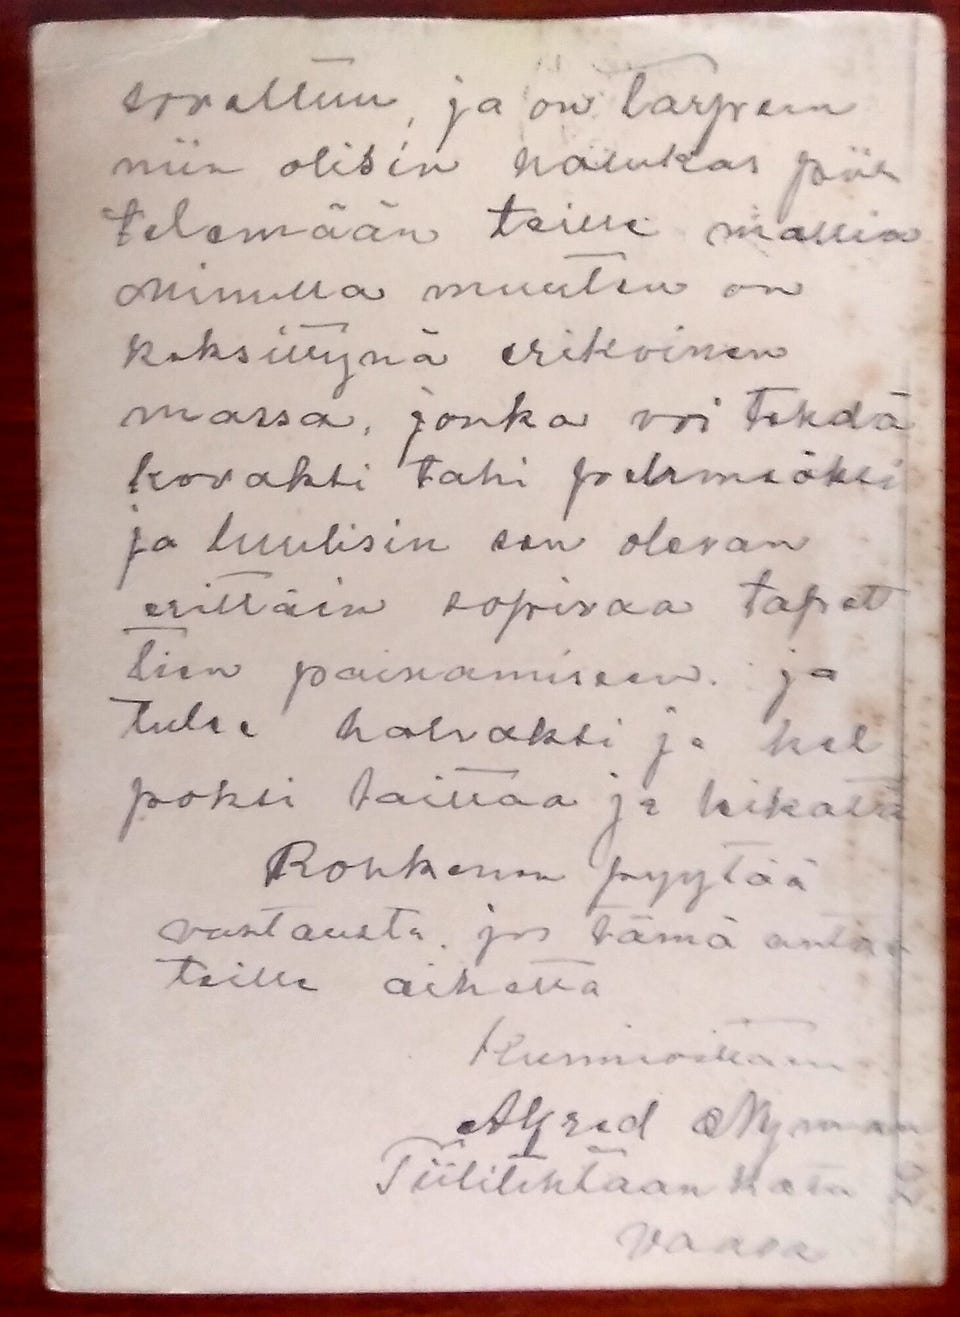 sovelttuu, ja on tarpeen
niin olisin halukas piir
telemään teille mallia
Minulla muuten on
keksittynä erikoinen
massa, jonka voi tehdä
kovaksi tahi pehmeäksi
ja luulisin sen olevan
erittäin sopivaa tapet
tien painamiseen. ja
tulee halvaksi ja hel
poksi laittaa ja leikata
Rohkenen pyytää
vastausta. jos tämä antaa
teille aihetta
Kunnioittaen
Alfred Nyman
Tiilitehtaan katu 2
Vaasa